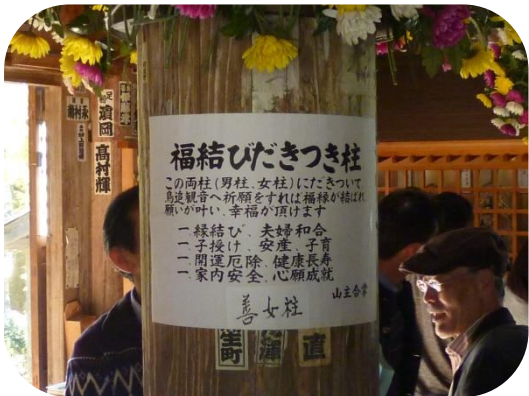 福結びだきつき柱
この両柱(男柱、女柱)にだきついて
鳥追観音へ祈願をすれば福縁が結ばれ
願いが叶い、幸福が頂けます
一、縁結び、夫婦和合
一、子授け、安産、子育
一、開運厄除、健康長寿
一、家内安全、心願成就
山主合掌
善女柱
濵岡
高村輝
生町
直